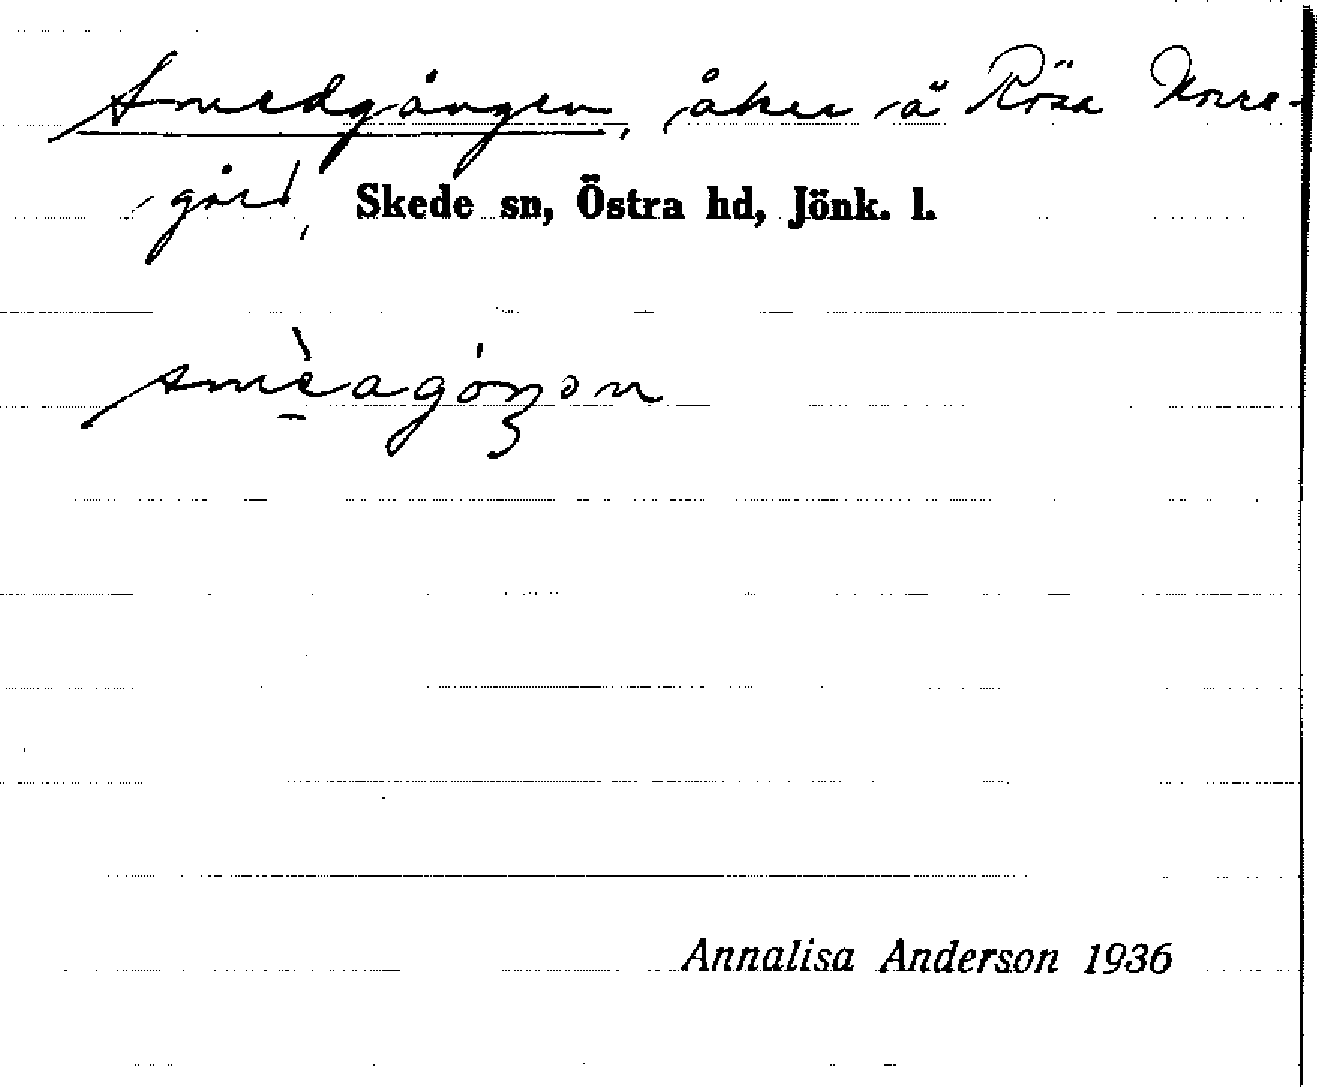 Smedgången, åker å Rösa Norre-
gård, Skede sn, Östra hd, Jönk. l.
Annalisa Anderson 1936